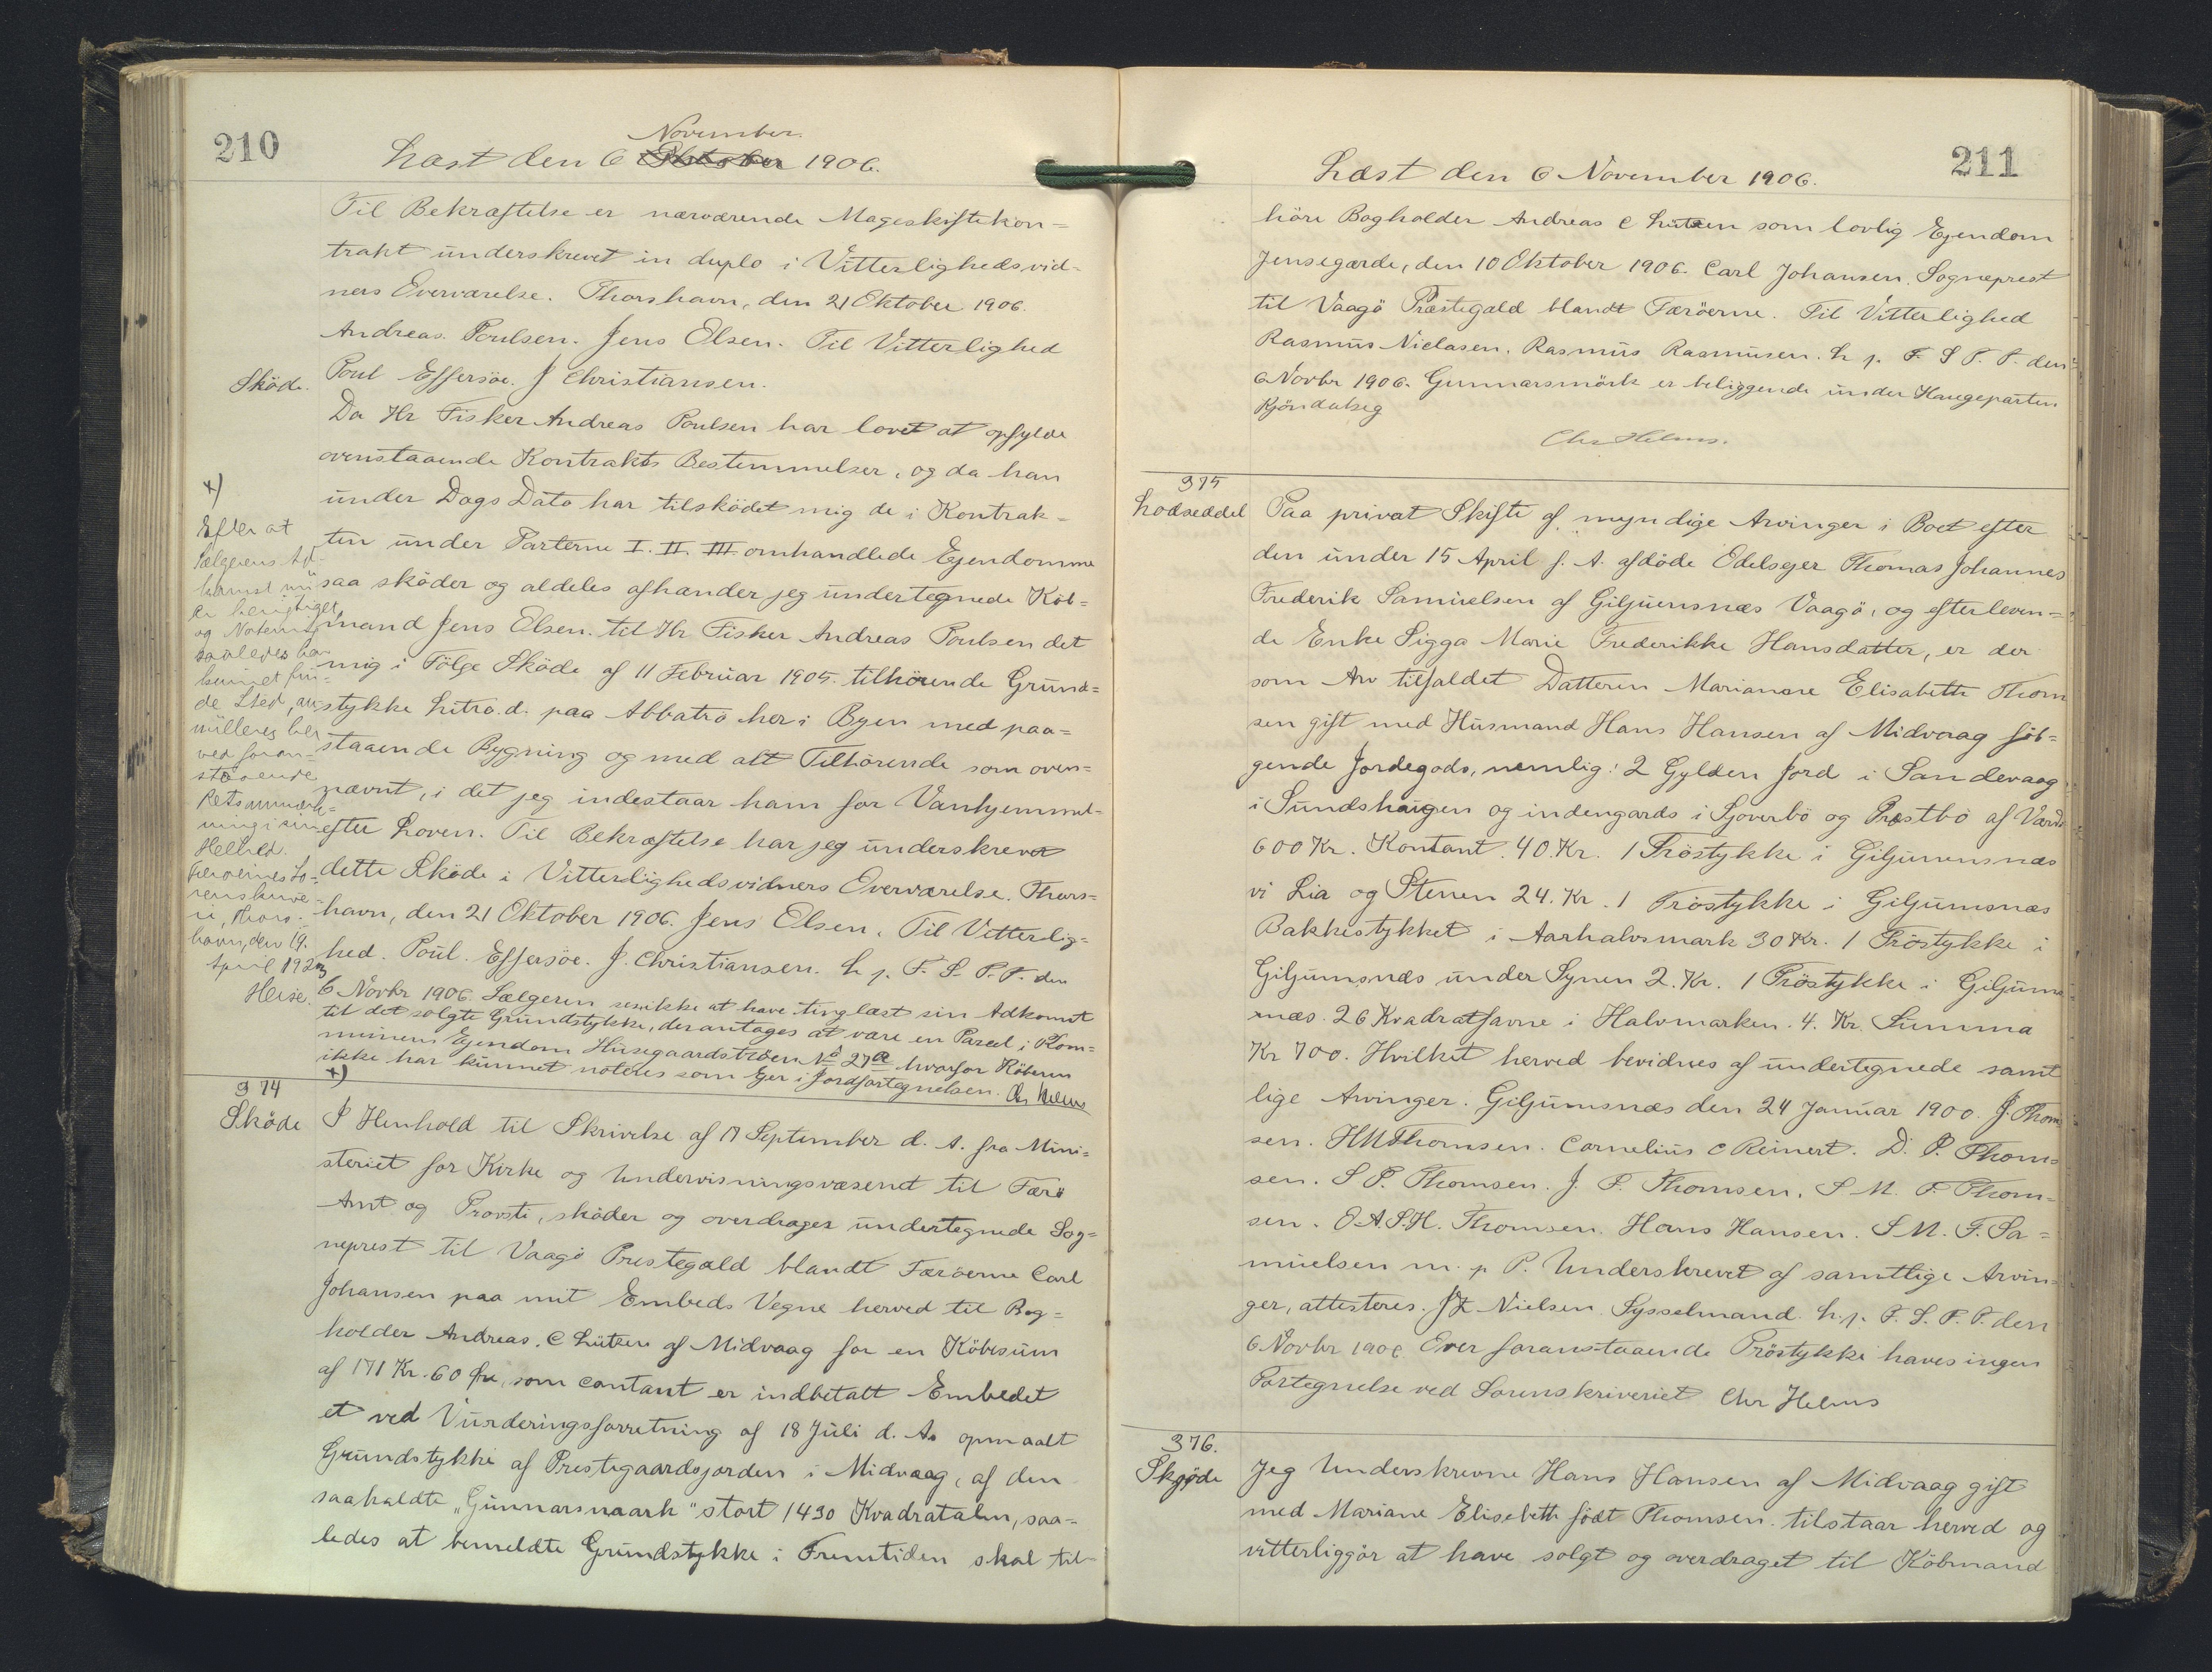 210
November.
Læst den 6 Oktober 1906.
Til Bekræftelse er nærværende Mageskiftekon=
trakt underskrevet in duplo i Vitterlighedsvid=
ners Overværelse. Thorshavn, den 21 Oktober 1906.
Andreas. Poulsen. Jens Olsen. Til Vitterlighed
Poul Effersöe. J Christiansen.
Sköde.
Da Hr Fisker Andreas Poulsen har lovet at opfylde
ovenstaaende Kontrakts Bestemmelser, og da han
under Dags Dato har tilsködet mig de i Kontrak=
ten under Parterne I. II. III omhandlede Ejendomme
saa sköder og aldeles afhænder jeg undertegnede Köb=
mand Jens Olsen. til Hr Fisker Andreas Poulsen det
mig i Fölge Sköde af 11 Februar 1905. tilhörende Grund=
stykke Litra. d. paa Abbatrö her i Byen med paa=
staaende Bygning og med alt Tilhörende som oven=
nævnt, i det jeg indestaar ham for Vanhjemmel
efter Loven. Til Bekræftelse har jeg underskrevet
dette Sköde i Vitterlighedsvidners Overværelse. Thors=
havn, den 21 Oktober 1906. Jens Olsen. Til Vitterlig=
hed. Poul. Effersöe. J. Christiansen. L. p. F. S. P. T. den
6 Novbr 1906. Sælgeren ses ikke at have tinglæst sin Adkomst
til det solgte Grundstykke, der antages at være en Parcel i Kom=
munens Ejendom Husegaardströen No 27a hvorfor Köberen
ikke har kunnet noteres som Ejer i Jordfortegnelsen. Chr Helms
+)
+)
Efter at
Sælgerens Ad-
komst nu
er berigtiget
og Notering
saaledes har
kunnet fin=
de Sted, an=
nulleres her
ved foran=
staaende
Retsanmærk=
ning i sin
Helhed.
Færøernes So=
renskrive=
ri, Thors=
havn, den 19.
April 1923
Heise.
374
Sköde
I Henhold til Skrivelse af 17 September d. A. fra Mini=
steriet for Kirke og Undervisningsvæsenet til Færö
Amt og Provsti, sköder og overdrager undertegnede Sog=
neprest til Vaagö Prestegæld blandt Færöerne Carl
Johansen paa mit Embeds Vegne herved til Bog=
holder Andreas. C Lützen af Midvaag for en Köbesum
af 171 Kr. 60 Øre, som contant er indbetalt Embedet
et ved Vurderingsforretning af 18 Juli d. A. opmaalt
Grundstykke af Prestegaardsjorden i Midvaag, af den
saakaldte "Gunnarsmaark" stort 1430 Kvadratalen, saa=
ledes at bemeldte Grundstykke i Fremtiden skal til-
211
Læst den 6 November 1906.
höre Bogholder Andreas C Lützen som lovlig Ejendom
Jensegærde, den 10 Oktober 1906. Carl Johansen. Sogneprest
til Vaagö Præstegæld blandt Færöerne. Til Vitterlighed
Rasmus Niclasen. Rasmus Rasmusen. L p. F. S P. T. den
6 Novbr 1906. Gunnarsmörk er beliggende under Haugeparten
Kjöndalseg
Chr Helms.
375
Lodseddel
Paa privat Skifte af myndige Arvinger i Boet efter
den under 15 April f. A. afdöde Odelsejer Thomas Johannes
Frederik Samuelsen af Giljumsnæs Vaagö, og efterleven=
de Enke Sigga Marie Frederikke Hansdatter, er der
som Arv tilfaldet Datteren Mariane Elisabeth Thom
sen gift med Husmand Hans Hansen af Midvaag föl=
gende Jordegods, nemlig: 2 Gylden Jord i Sandevaag
i Sundshaugen og indengards i Sjoverbö og Præstbö af Værdi
600 Kr. Kontant. 40. Kr. 1 Tröstykke i Giljumsnæs
vi Lia og Stenen 24. Kr. 1 Tröstykke i Giljumsnæs
Bakkestykket i Aarhalvsmark 30 Kr. 1 Tröstykke i
Giljumsnæs under Synen 2. Kr. 1 Tröstykke i Giljums
næs. 26 Kvadratfavne i Halvmarken. 4. Kr. Summa
Kr 700. Hvilket herved bevidnes af undertegnede samt
lige Arvinger. Giljumsnæs den 24 Januar 1900. J. Thom
sen. H M Thomsen. Cornelius C Reinert. D. P. Thom=
sen. S P. Thomsen. J. F. Thomsen. S M. F. Thom=
sen. O. A. S. H. Thomsen. Hans Hansen. S M. F. Sa=
muelsen m. p P. Underskrevet af samtlige Arvin=
ger, attesteres. Nielsen Sysselmand. L. p. F. S. P. T. den
6 Novbr 1906 Over foranstaaende Tröstykke haves ingen
Fortegnelse ved Sorenskriveriet Chr Helms
376.
Skjöde
Jeg Underskrevne Hans Hansen af Midvaag gift
med Mariane Elisebeth födt Thomsen. tilstaar herved og
vitterliggör at have solgt og overdraget til Köbmand